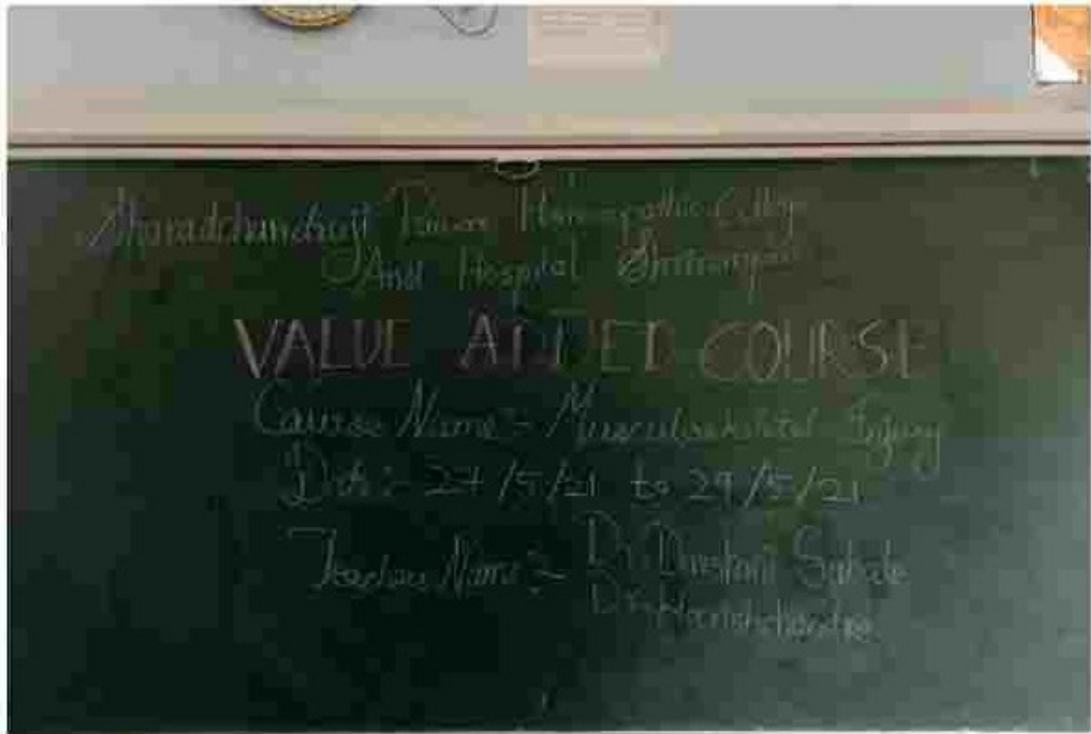 Sharadchandraji Pawar Homeopathic College
And Hospital Shrirampur
VALUE ADDED COURSE
Course Name :- Musculoskeletal Injury
Date :- 27/5/21 to 29/5/21
Teacher Name :- Dr
Dr. Harishchandra